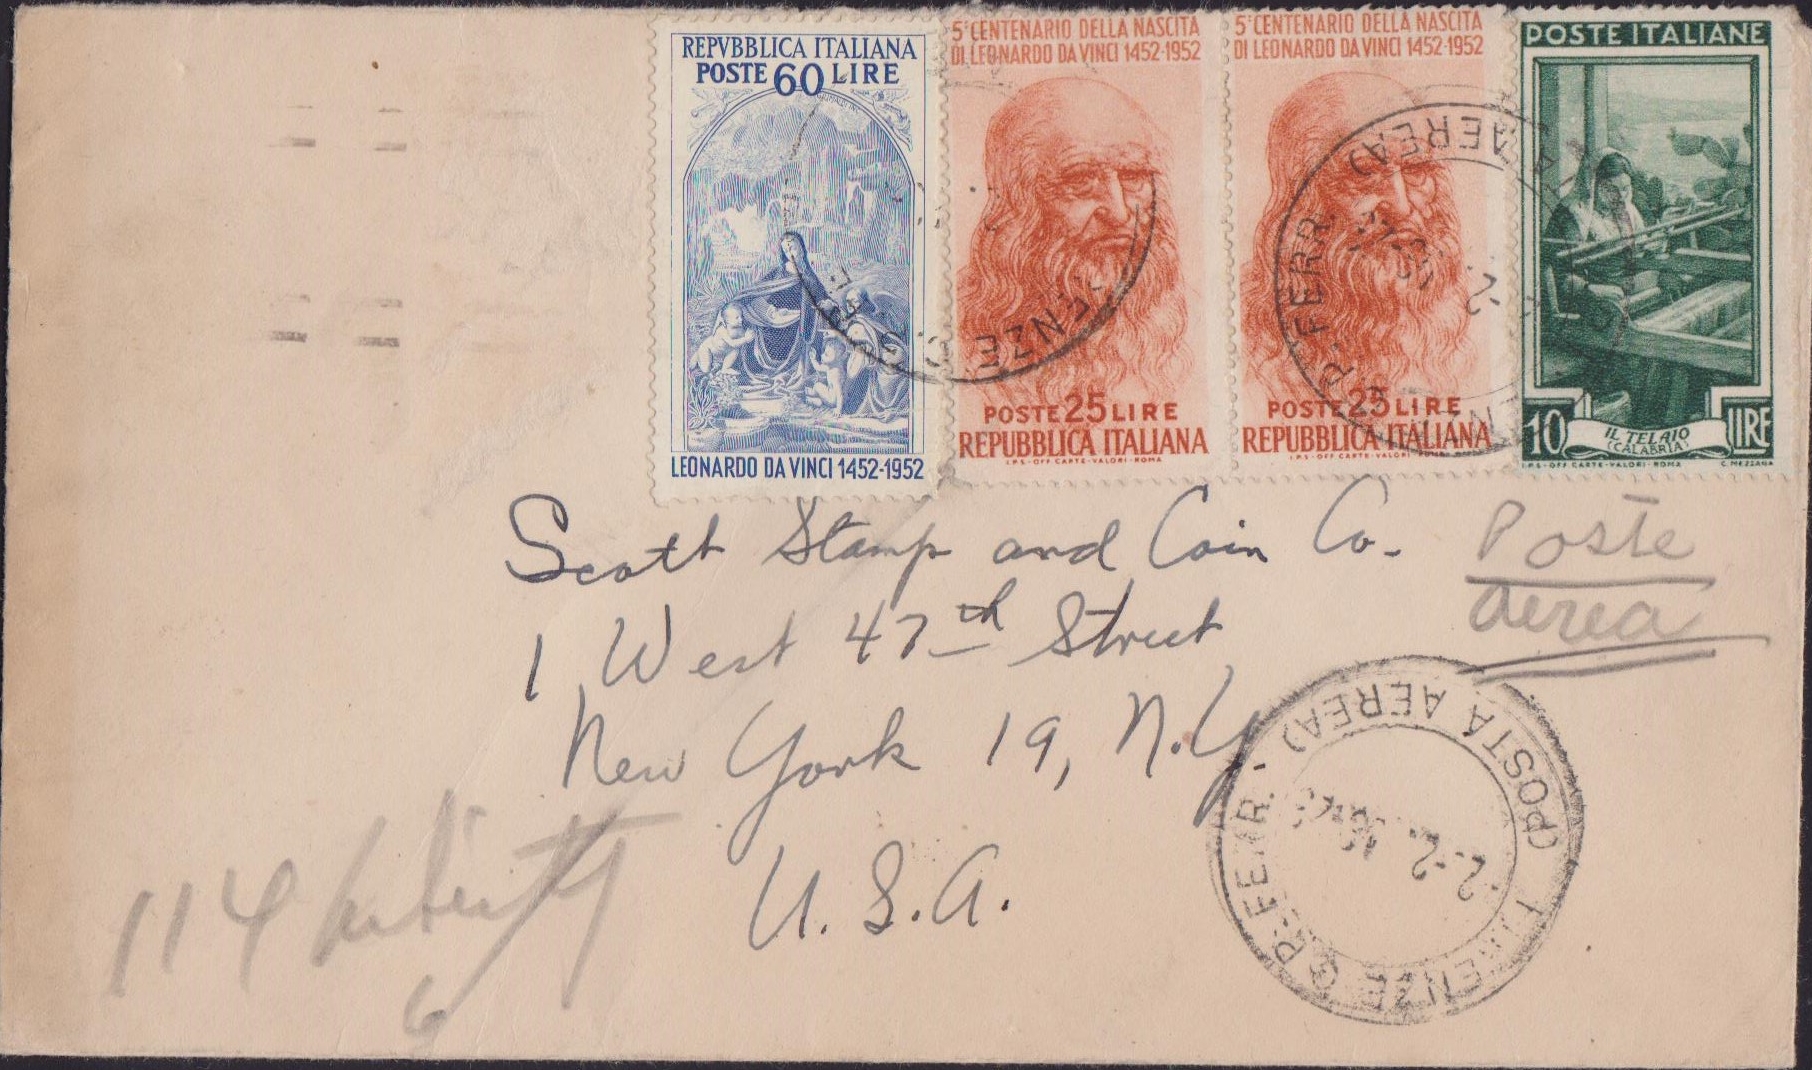 REPVBBLICA ITALIANA
POSTE 60 LIRE
LEONARDO DA VINCI 1452-1952
5° CENTENARIO DELLA NASCITA
DI LEONARDO DA VINCI 1452-1952
POSTE 25 LIRE
REPUBBLICA ITALIANA
I.P.S.-OFF. CARTE-VALORI-ROMA
5° CENTENARIO DELLA NASCITA
DI LEONARDO DA VINCI 1452-1952
POSTE 25 LIRE
REPUBBLICA ITALIANA
I.P.S.-OFF. CARTE-VALORI-ROMA
POSTE ITALIANE
10 LIRE
IL TELAIO
(CALABRIA)
I.P.S.-OFF. CARTE-VALORI-ROMA C. MEZZANA
P. FERR. AEREA)
Scott Stamp and Coin Co.
1 West 47th Street
New York 19, N.Y.
U.S.A.
Poste
aerea
FIRENZE P. FERR. (POSTA AEREA)
114
6